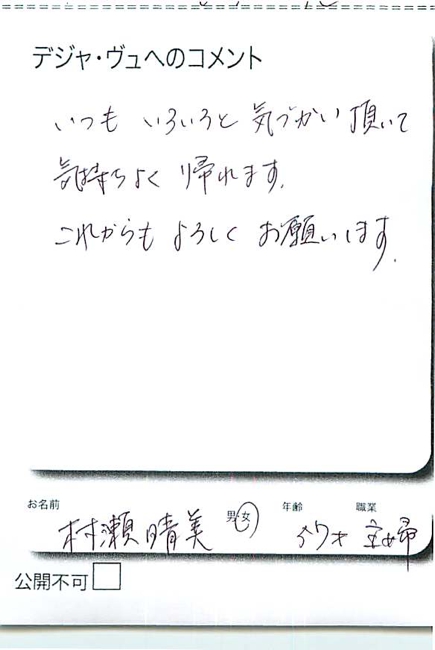 デジャ・ヴュへのコメント
いつも いろいろと 気づかい 頂いて
気持ちよく 帰れます.
これからも よろしく お願いします.
お名前 男・女 年齢 職業
村瀬晴美 才 主婦
公開不可